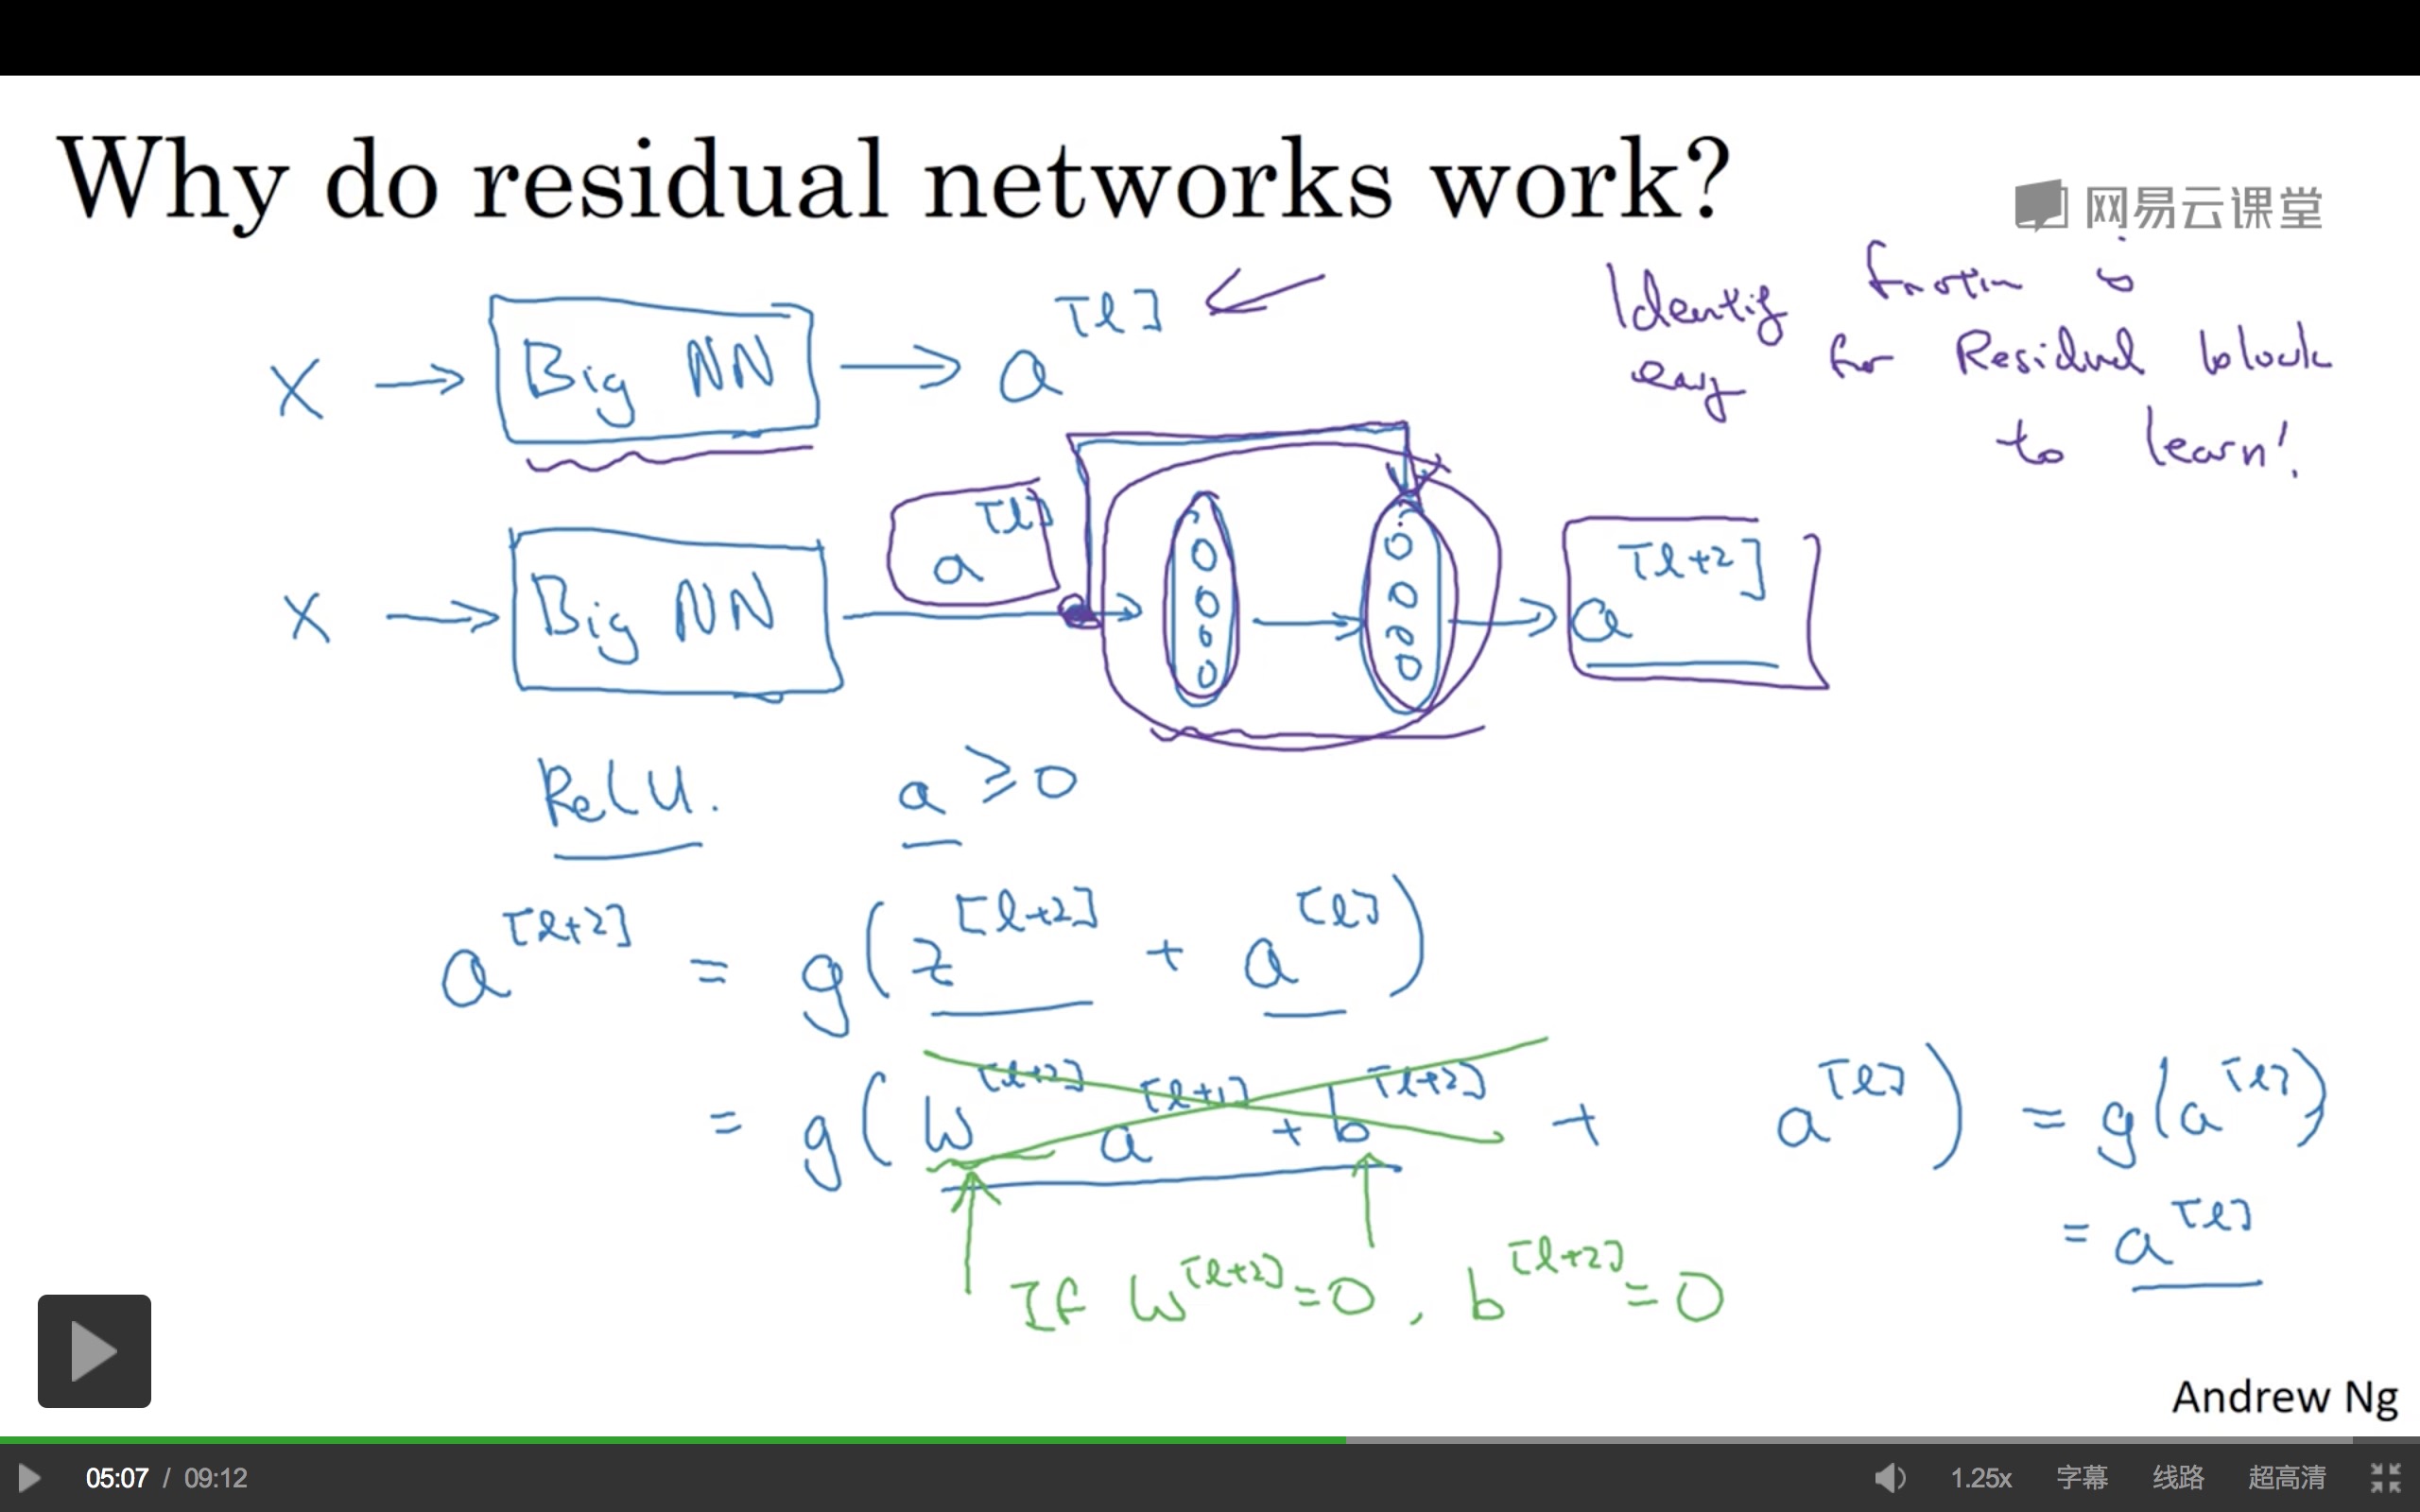 Why do residual networks work?
网易云课堂
X → Big NN → a^[l]
Identity function is
easy for Residual block
to learn!
X → Big NN → a^[l] → → a^[l+2]
ReLU. a ≥ 0
a^[l+2] = g(z^[l+2] + a^[l])
= g(W^[l+2] a^[l+1] + b^[l+2] + a^[l]) = g(a^[l])
= a^[l]
If W^[l+2] = 0, b^[l+2] = 0
Andrew Ng
05:07 / 09:12 1.25x 字幕 线路 超高清